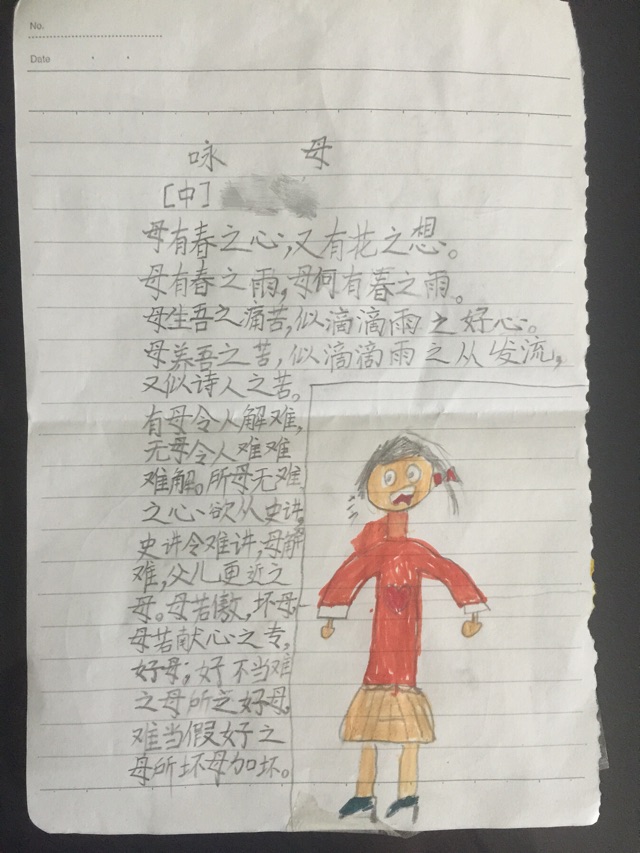 No.
Date
咏 母
[中]
母有春之心;又有花之想。
母有春之雨,母何有春之雨。
母生吾之痛苦,似滴滴雨之好心。
母养吾之苦,似滴滴雨之从发流,
又似诗人之苦。
有母令人解难,
无母令人难难
难解。所母无难
之心、欲从史讲,
史讲令难讲,母解
难,父儿更近之
母。母若傲,坏母
母若献心之专,
好母;好不当难
之母所之好母,
难当假好之
母所坏母加坏。